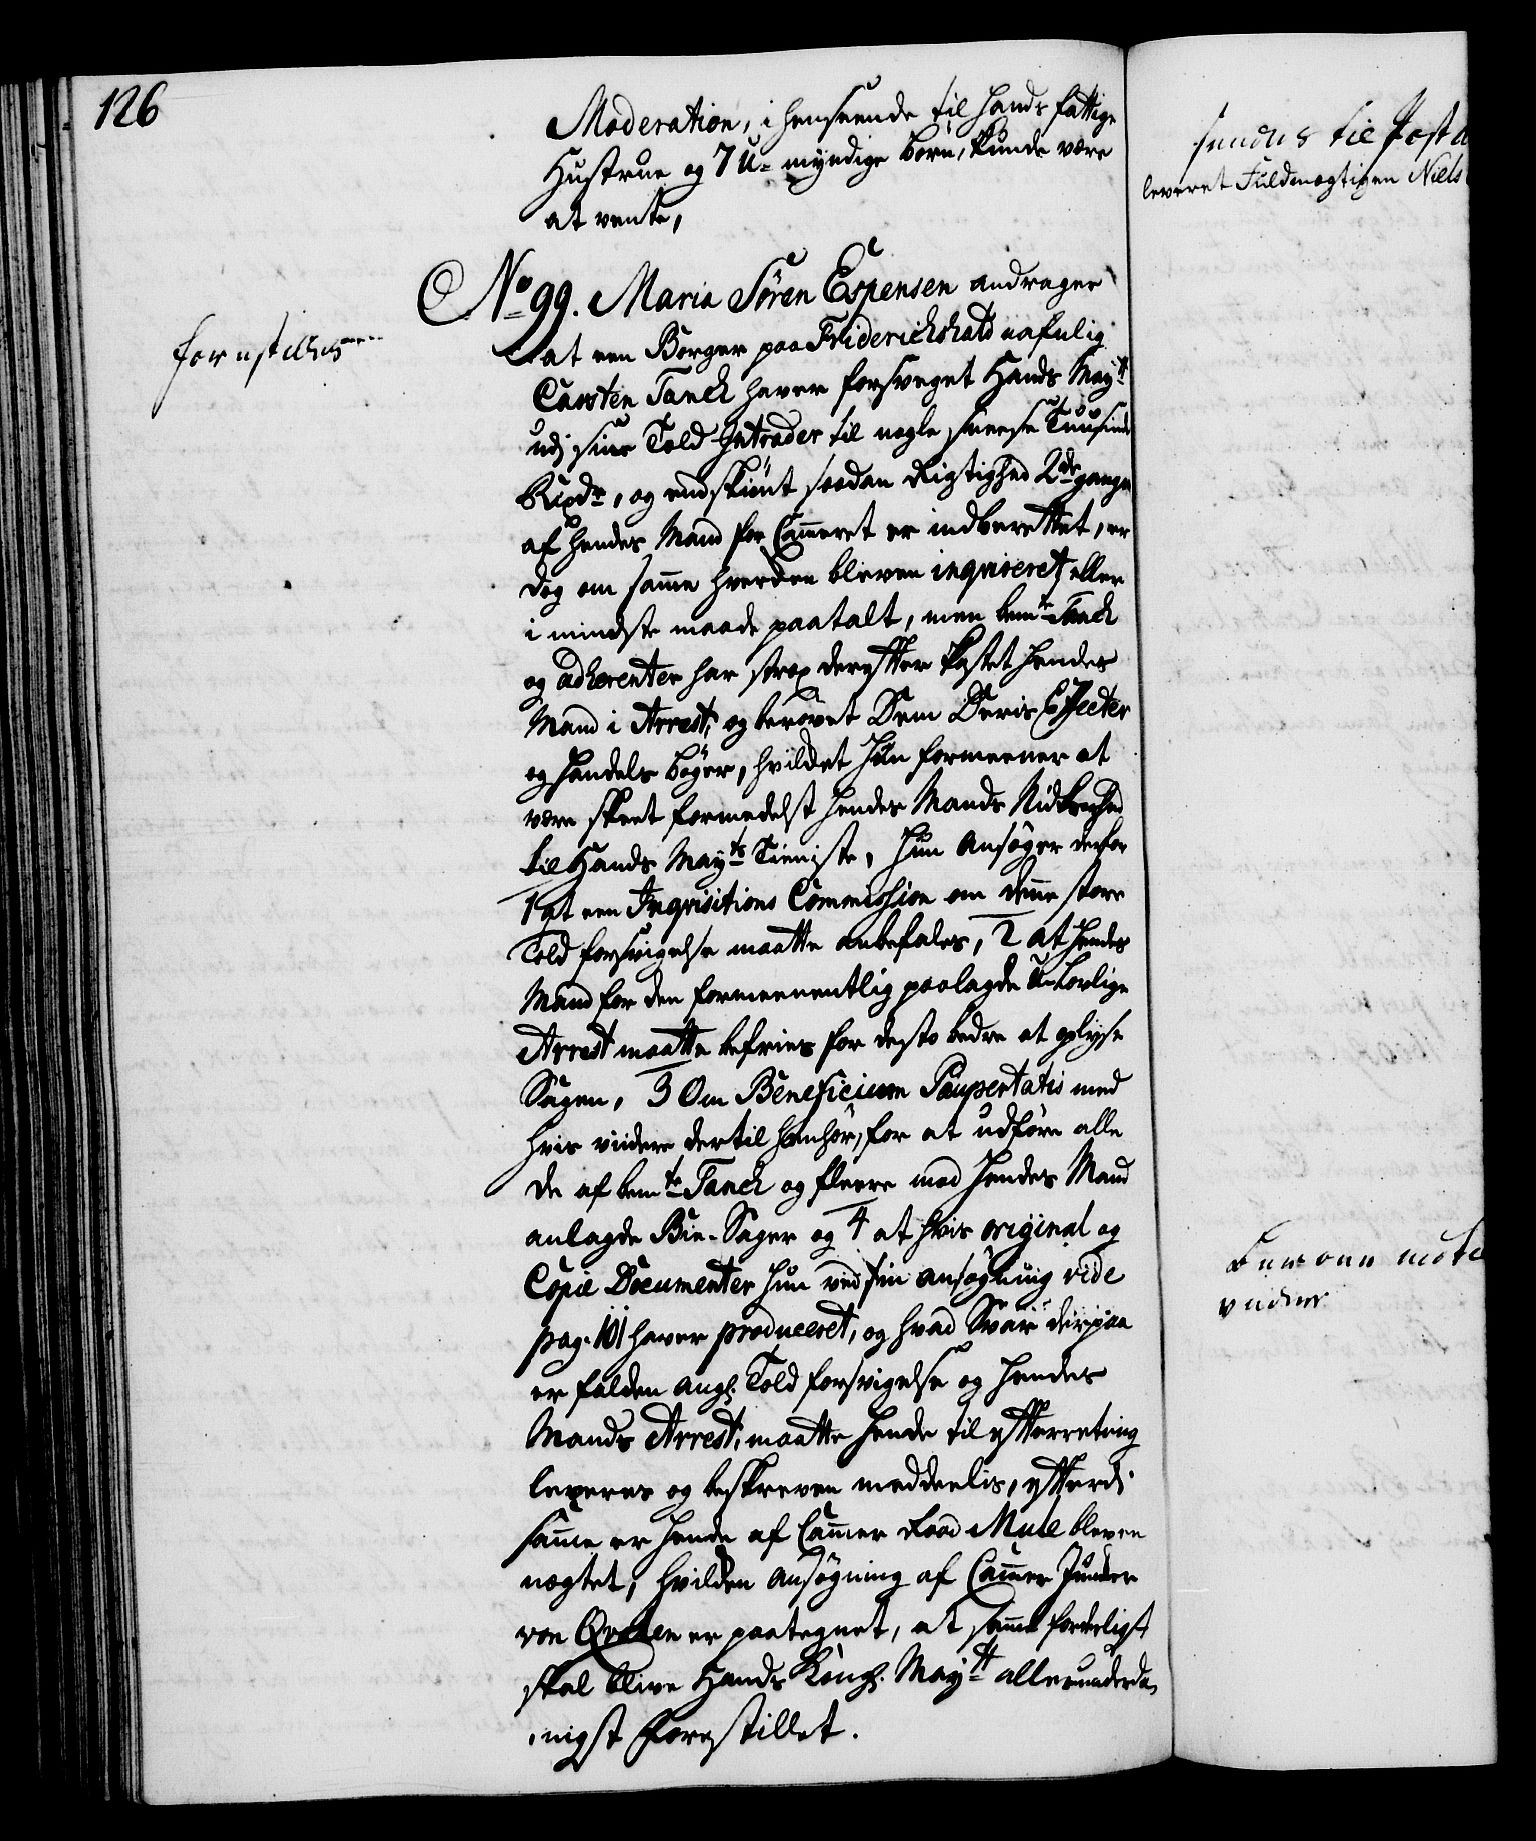 126
Moderation, i henseende til hands fattige
Hustrue og 7 U-myndige börn, kunde være
at vente,
No 99. Maria Sören Espensen andrager
forestilles
at een Borger paa Friderichshald nafnlig
Carsten Tanck haver forsveget Hands Mayts
udj sine Told-Intrader til nogle sneese Tuusinde
Rixdr, og endskiönt saadan Rigtighed 2de gange
af hendes Mand for Cammeret er indberettet, er
dog om samme hverken bleven inqvireret eller
i mindste maade paatalt, men bemte Tanck
og adherenter har strax derefter kastet hendes
Mand i Arrest, og berövet Dem Deris Effecter
og Handels böger, hvilket hun formeener at
være skeet formedelst hendes Mands Nidkierhed
til Hands Mayts Tieniste, hun ansöger derfor
1 at een Inqvisitions Commission om denne store
Told forsvigelse maatte anbefales, 2 at hendes
Mand for den formeenentlig paalagde U-lovlige
Arrest maatte befries for desto bedre at oplyse
Sagen, 3 Om Beneficium Paupertatis med
hvis viidere dertil henhör, for at udföre alle
de af bemte Tanck og fleere mod hendes Mand
anlagde Bie-Sager og 4 at hvis original og
Copie Documenter hun ved sin ansögning vide
pag. 101 haver produceret, og hvad Svar derpaa
er falden angl. Told forsvigelse og hendes
Mands Arrest, maatte hende til efterretning
leveres og beskreven meddeelis, efterdj
samme er hende af Cammer Raad Mule bleven
negtet, hvilken ansögning af Cammer Juncker
von Qvalen er paategnet, at samme forderligst
skal blive Hands Kongl. Maytt allerunderda-
nigst forestillet.
sendes til Post
leveret Fuldmegtigen Niels